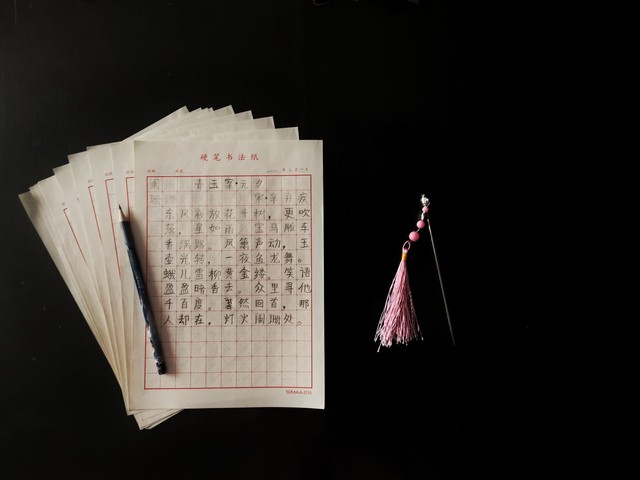 硬笔书法纸
青玉案·元夕
宋·辛弃疾
东风夜放花千树，更吹
落，星如雨。宝马雕车
香满路。凤箫声动，玉
壶光转，一夜鱼龙舞。
蛾儿雪柳黄金缕。笑语
盈盈暗香去。众里寻他
千百度。蓦然回首，那
人却在，灯火阑珊处。